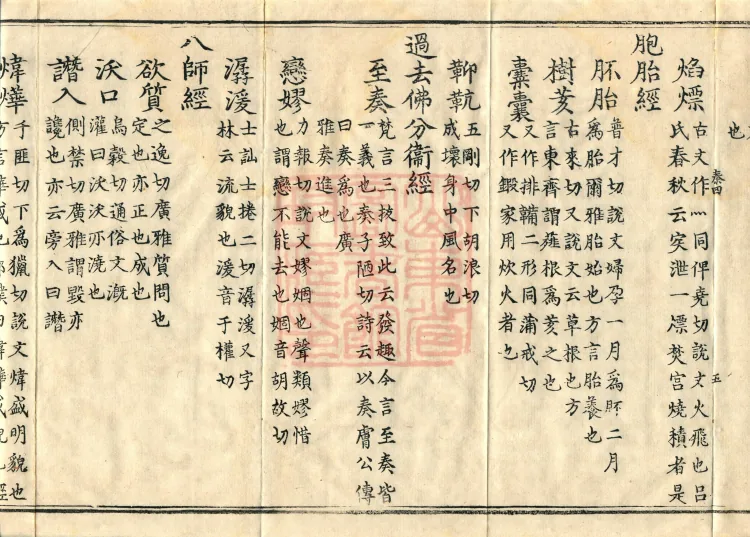 也
焰熛
古文作灬同俾堯切說文火飛也呂
氏春秋云突泄一熛焚宮燒積者是
五
胞胎經
胚胎
普才切說文婦孕一月爲胚二月
爲胎爾雅胎始也方言胎養也
樹荄
古來切又說文云草根也方
言東齊謂薤根爲荄之也
橐囊
又作排韛二形同蒲戒切
又作鍛家用炊火者也
五剛切下胡浪切
成壞身中風名也
過去佛分衞經
至奏
梵言三拔致此云發趣今言至奏皆
一義也奏子陋切詩云以奏膚公傳
曰奏爲也廣
雅奏進也
戀嫪
力報切說文嫪婟也聲類嫪惜
也謂戀不能去也婟音胡故切
潺湲
士訕士捲二切潺湲又字
林云流貌也湲音于權切
八師經
欲質
之逸切廣雅質問也
定也亦正也成也
沃口
烏縠切通俗文溉
灌曰沃沃亦澆也
譖入
側禁切廣雅謂毀亦
讒也亦云旁入曰譖
煒燁
于匪切下爲獵切說文煒盛明貌也